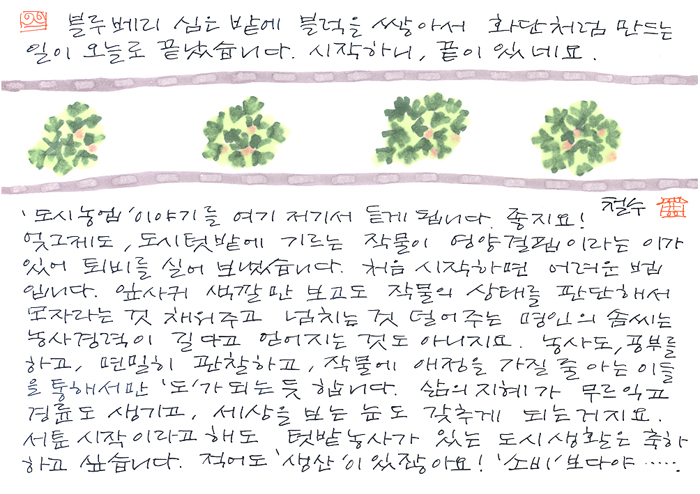 블루베리 심은 밭에 블럭을 쌓아서 화단처럼 만드는
일이 오늘로 끝났습니다. 시작하니, 끝이 있네요.
철수
'도시농업'이야기를 여기저기서 듣게 됩니다. 좋지요!
엊그제도, 도시텃밭에 기르는 작물이 영양결핍이라는 이가
있어 퇴비를 실어 보냈습니다. 처음 시작하면 어려운 법
입니다. 잎사귀 색깔만 보고도 작물의 상태를 판단해서
모자라는 것 채워주고 넘치는 것 덜어주는 명인의 솜씨는
농사경력이 길다고 얻어지는 것도 아니지요. 농사도, 공부를
하고, 면밀히 관찰하고, 작물에 애정을 가질 줄 아는 이들
을 통해서만 '도'가 되는 듯 합니다. 삶의 지혜가 무르익고
경륜도 생기고, 세상을 보는 눈도 갖추게 되는거지요.
서툰 시작이라고 해도 텃밭농사가 있는 도시생활은 축하
하고 싶습니다. 적어도 '생산'이 있잖아요! '소비'보다야 ‥‥‥.